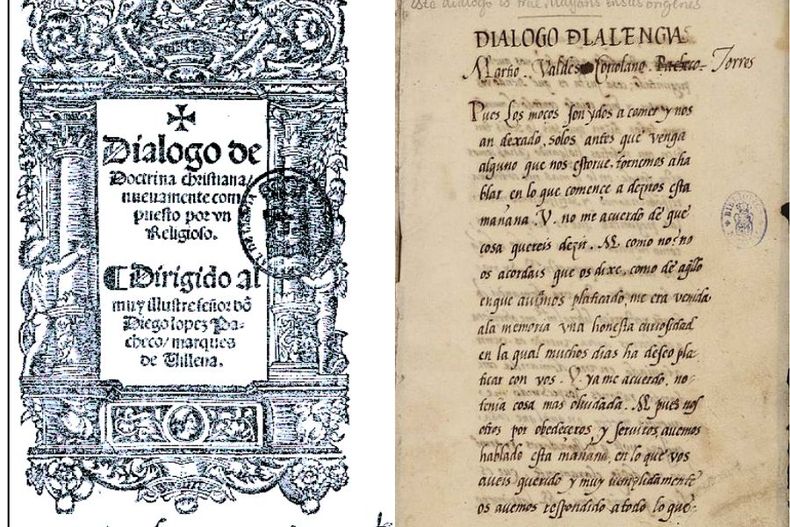 Dialogo de
Doctrina christiana/
nueuamente com
puesto por vn
Religioso.
Dirigido al
muy illustre señor dõ
Diego lopez Pa-
checo/ marques
de Uillena.
este dialogo
DIALOGO DLALENGVA
Martio. Valdes. Coriolano. Pacheco. Torres
Pues los moços son ydos a comer y nos
an dexado, solos antes que venga
alguno que nos estorue, tornemos a ha
blar en lo que comence a deziros esta
mañana. V. no me acuerdo de que
cosa quereis dezir. M. como no? no
os acordais que os dixe, como de aq̃llo
enque auiamos platicado, me era venida
ala memoria vna honesta curiosidad
en la qual muchos dias ha deseo pla-
ticar con vos. V. ya me acuerdo, no
tenia cosa mas oluidada. M. pues nos
otros por obedeceros y seruiros auemos
hablado esta mañana, en lo que vos
aueis querido y muy cumplidamente
os auemos respondido a todo lo que